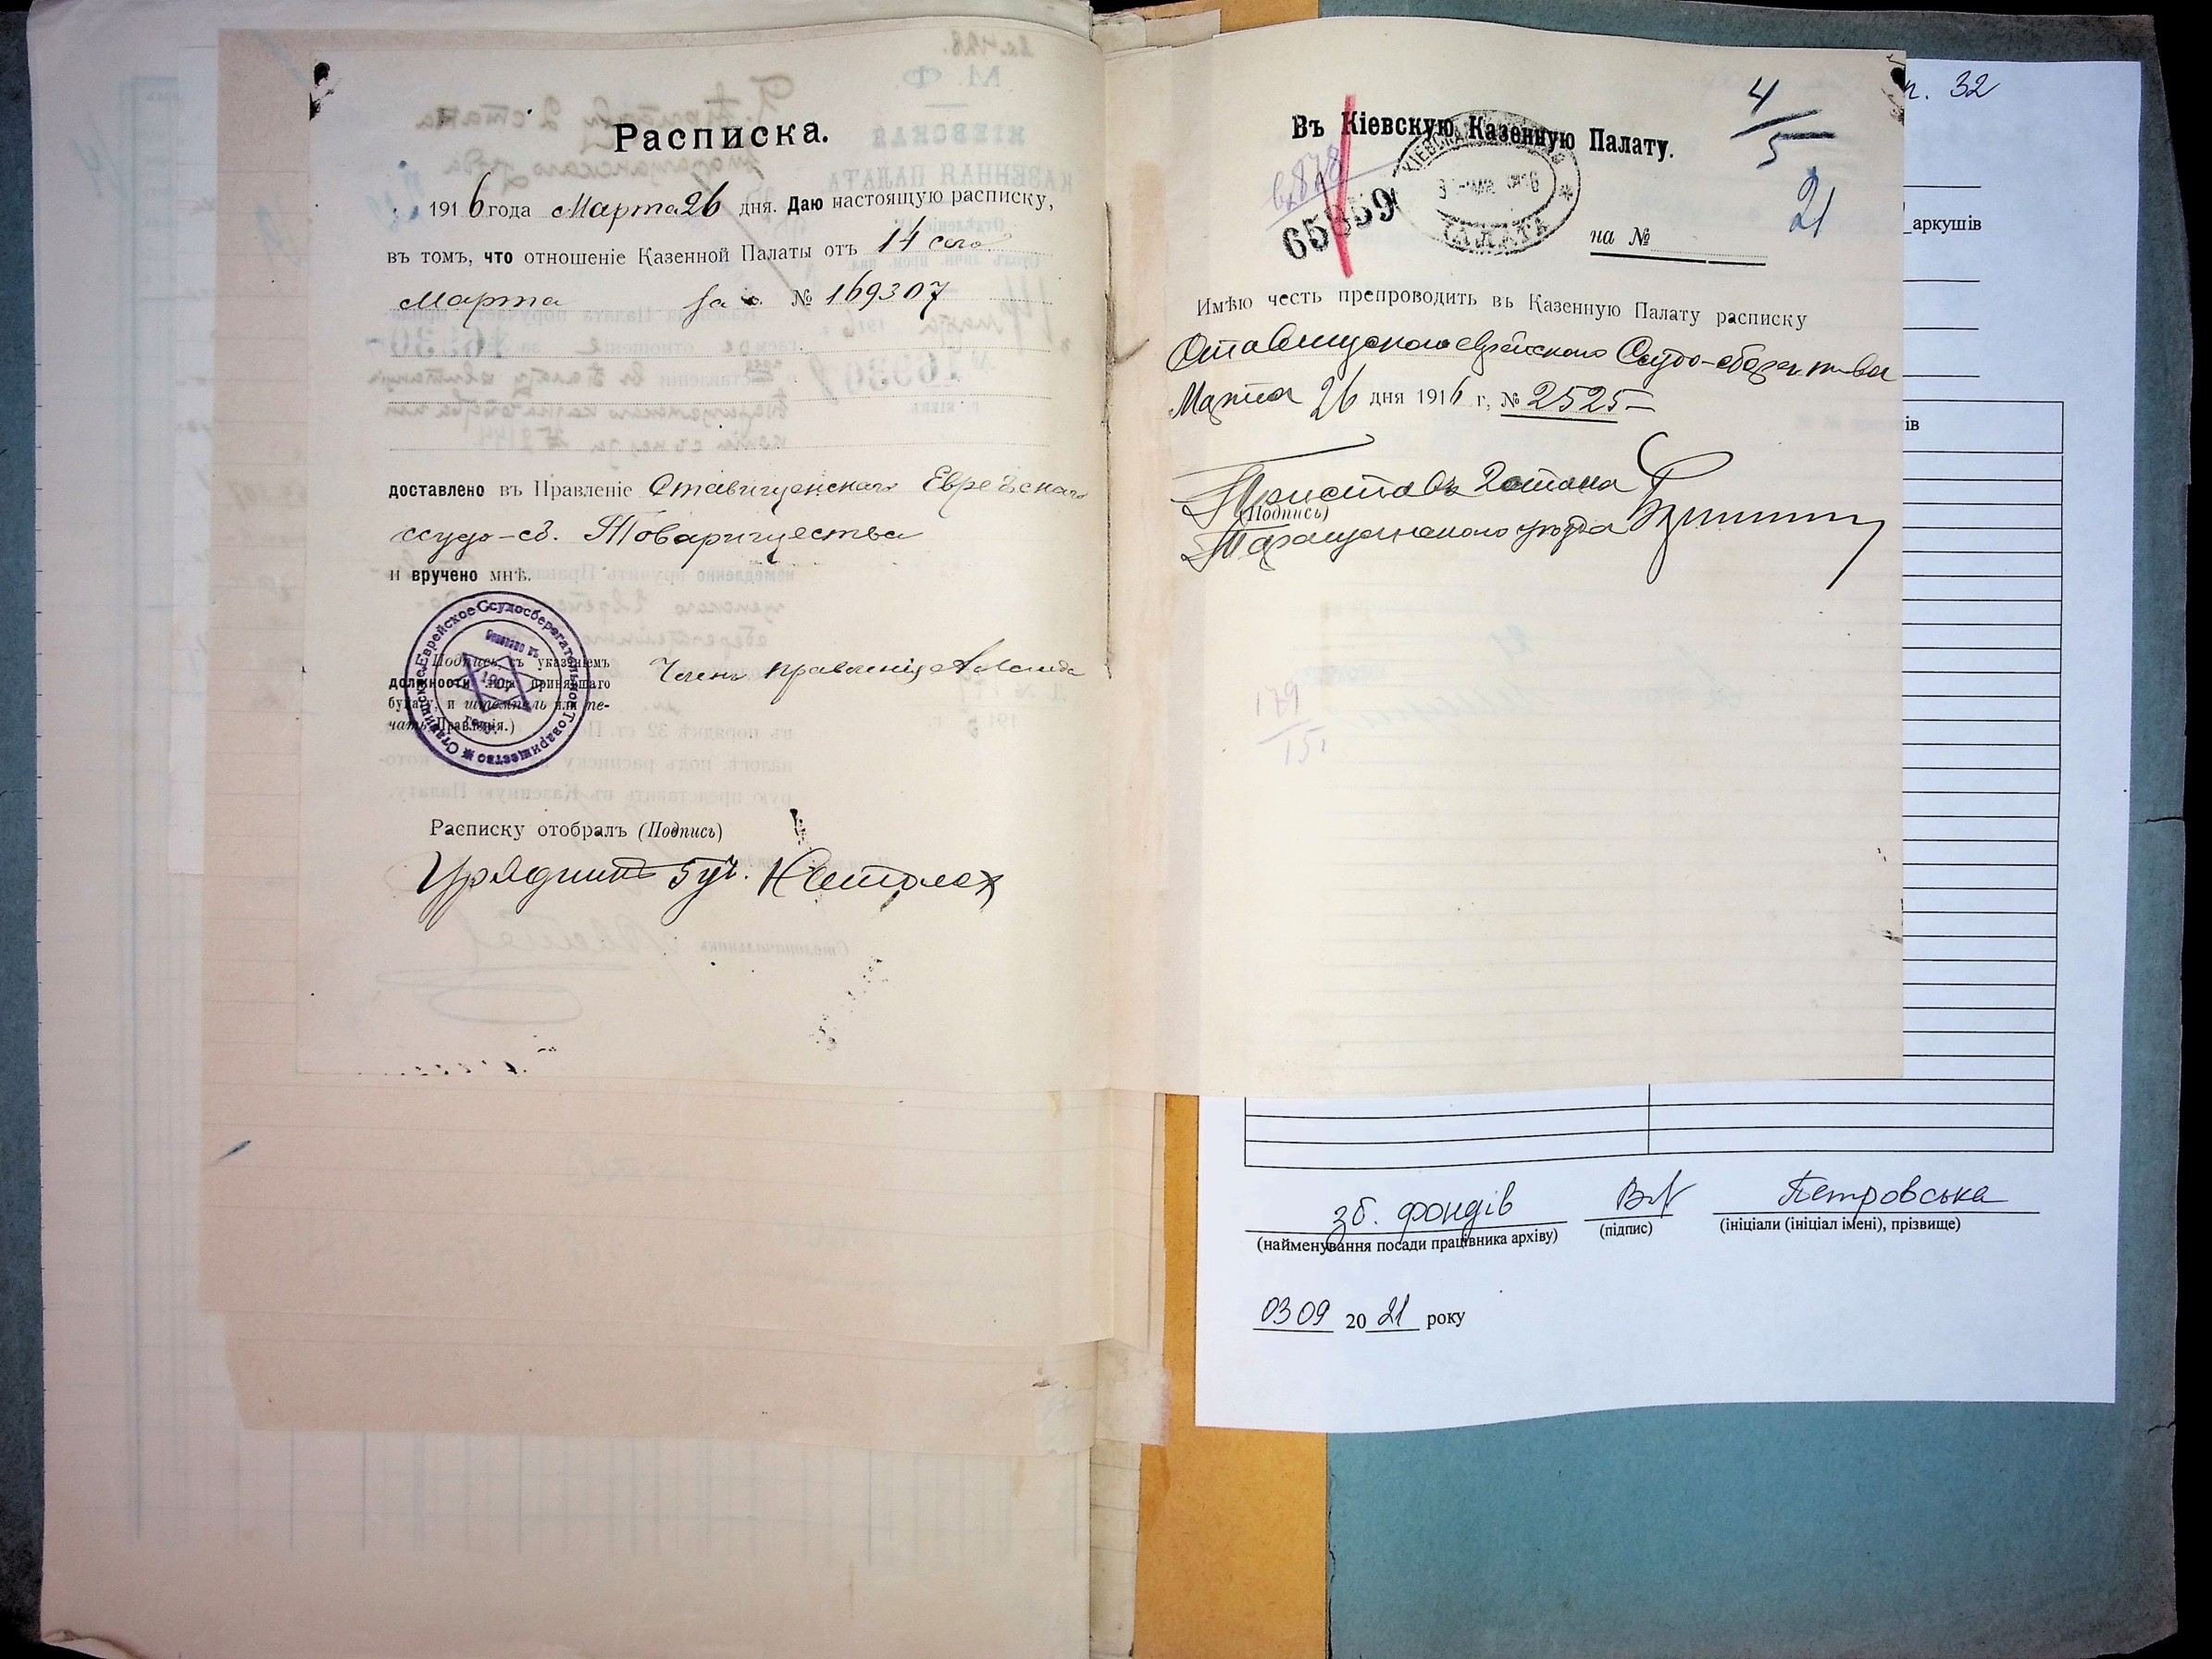 Расписка.
1916 года Марта 26 дня. Даю настоящую расписку,
въ томъ, что отношеніе Казенной Палаты отъ 14 сего
Марта за № 169307
доставлено въ Правленіе Ставищенскаго Еврейскаго
ссудо-сб. Товарищества
и вручено мнѣ.
Ставищское Еврейское Ссудосберегательное Товарищество
Основано въ
1907
(Подпись, съ указаніемъ
должности лица принявшаго
бумагу, и штемпель или пе-
чать Правленія.)
Членъ правленія
Расписку отобралъ (Подпись)
Урядникъ 5 уч.
Въ Кіевскую Казенную Палату.
4/5
21
65859
КІЕВСКАЯ
ПАЛАТА
на №
Имѣю честь препроводить въ Казенную Палату расписку
Ставищскаго еврейскаго Ссудо-сберег. т-ва
Марта 26 дня 1916 г, № 2525
Приставъ 2 стана
(Подпись)
Таращанскаго уѣзда
179
15
п. 32
аркушів
ів
зб. фондів
Петровська
(найменування посади працівника архіву)
(підпис)
(ініціали (ініціал імені), прізвище)
03 09 2021 року